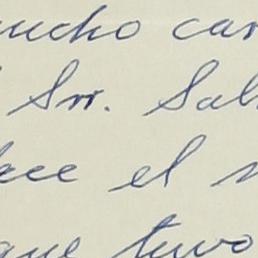 mucho car
Sr. Sal
ace el
que tuvo